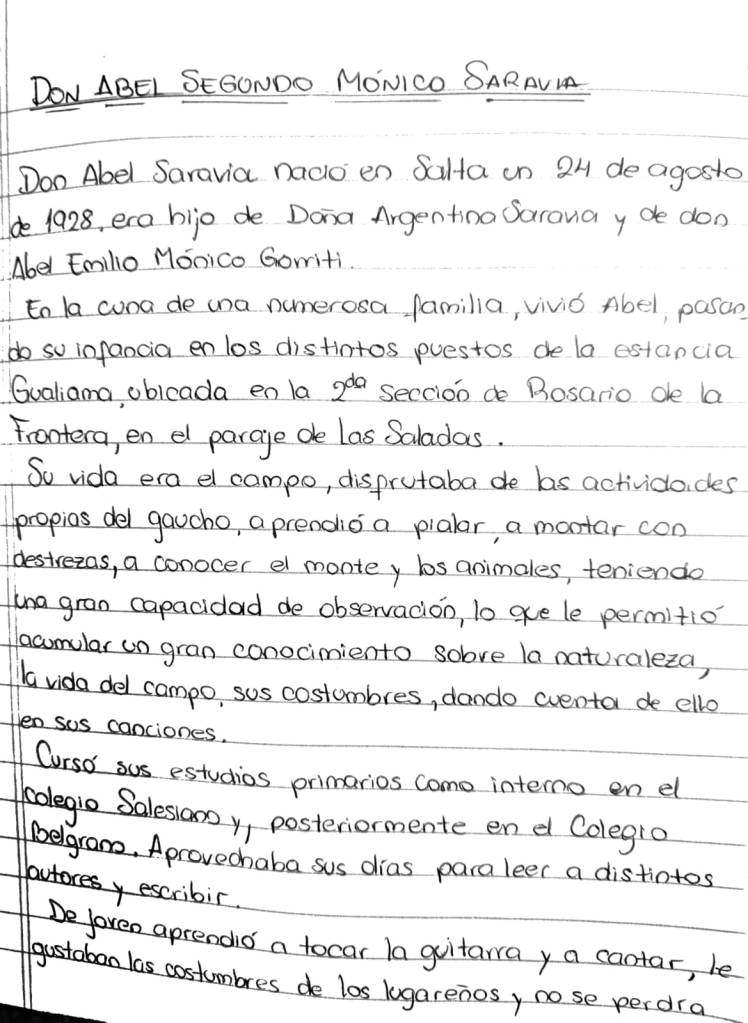 DON ABEL SEGUNDO MÓNICO SARAVIA
Don Abel Saravia nació en Salta un 24 de agosto
de 1928, era hijo de Doña Argentina Saravia y de don
Abel Emilio Mónico Gorriti.
En la cuna de una numerosa familia, vivió Abel, pasan
do su infancia en los distintos puestos de la estancia
Gualiama, ubicada en la 2da sección de Rosario de la
Frontera, en el paraje de Las Saladas.
Su vida era el campo, disfrutaba de las actividades
propias del gaucho, aprendió a pialar, a montar con
destrezas, a conocer el monte y los animales, teniendo
una gran capacidad de observación, lo que le permitió
acumular un gran conocimiento sobre la naturaleza,
la vida del campo, sus costumbres, dando cuenta de ello
en sus canciones.
Cursó sus estudios primarios como interno en el
colegio Salesiano y, posteriormente en el Colegio
Belgrano. Aprovechaba sus días para leer a distintos
autores y escribir.
De joven aprendió a tocar la guitarra y a cantar, le
gustaban las costumbres de los lugareños y no se perdía